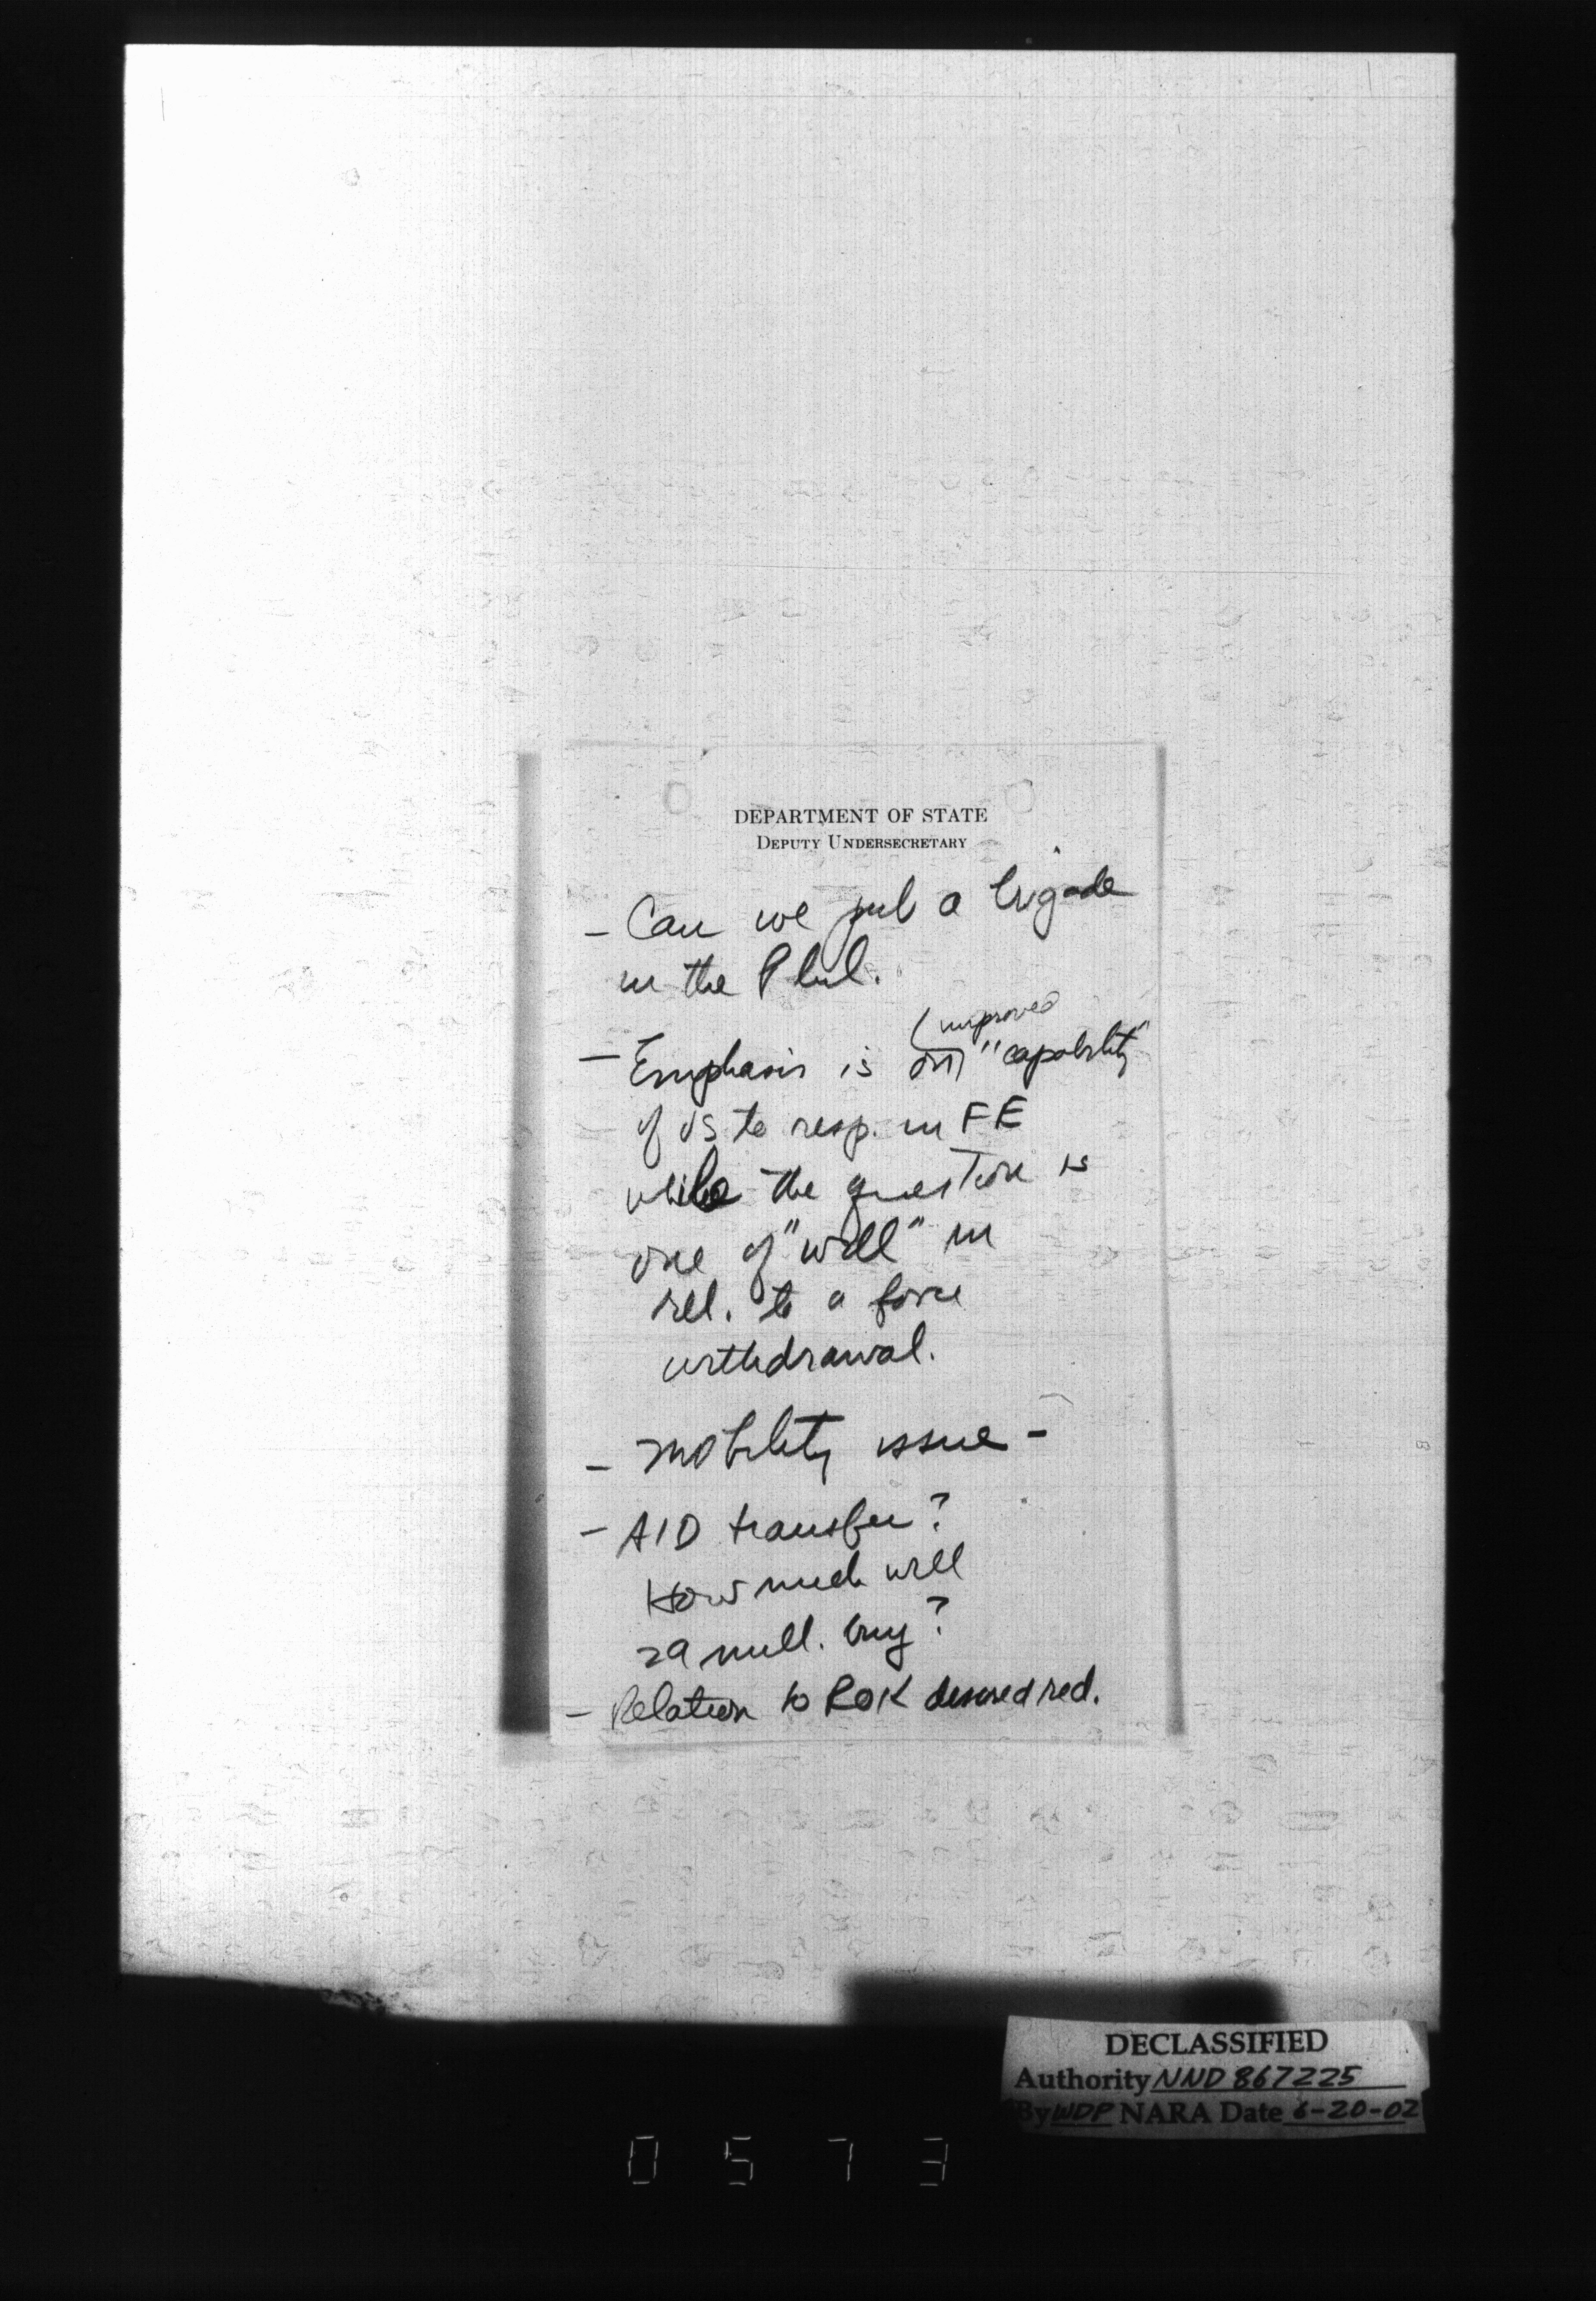 DEPARTMENT OF STATE
DEPUTY UNDERSECRETARY
- Can we put a brigade
in the Phil.
improved
- Emphasis is on "capability"
of US to resp. in FE
while the question is
one of "will" in
rel. to a force
withdrawal.
- mobility issue -
- AID transfer?
How much will
29 mill. buy?
- Relation to ROK desired red.
DECLASSIFIED
Authority NND 867225
By WDP NARA Date 6-20-02
0573